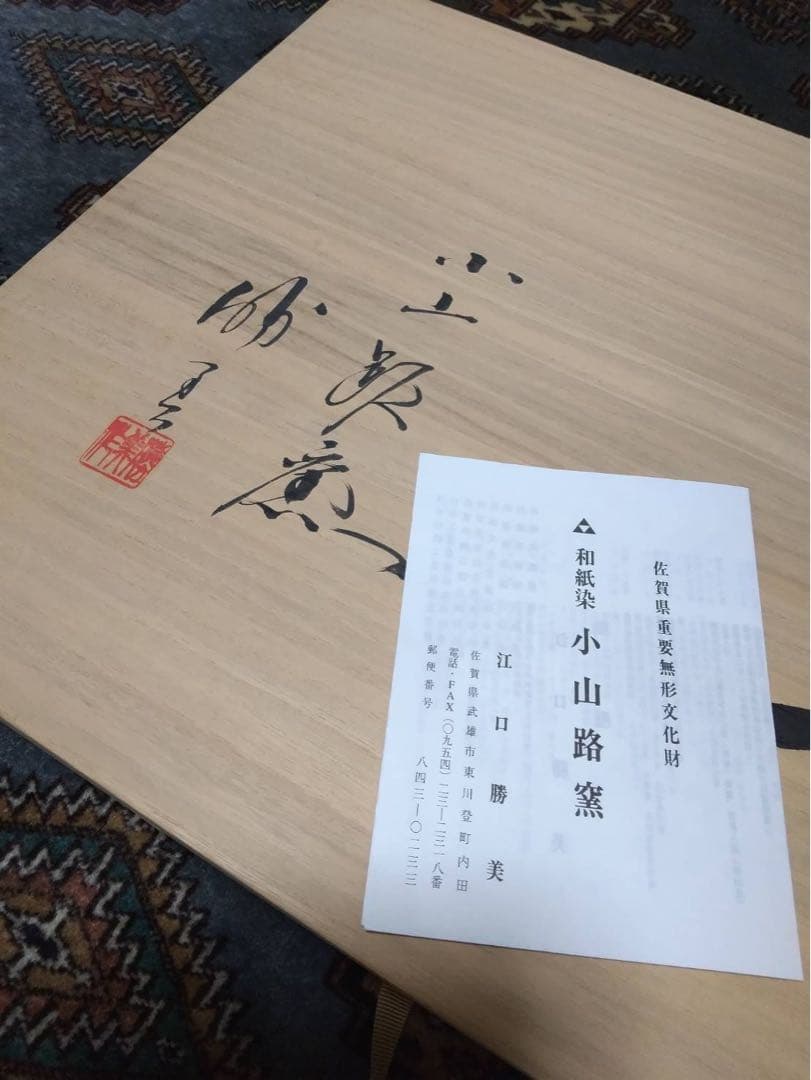 小山路窯
勝美
佐賀県重要無形文化財
和紙染 小山路窯
江口勝美
佐賀県武雄市東川登町内田
電話・FAX(〇九五四)二三―二三一八番
郵便番号 八四三―〇二三三